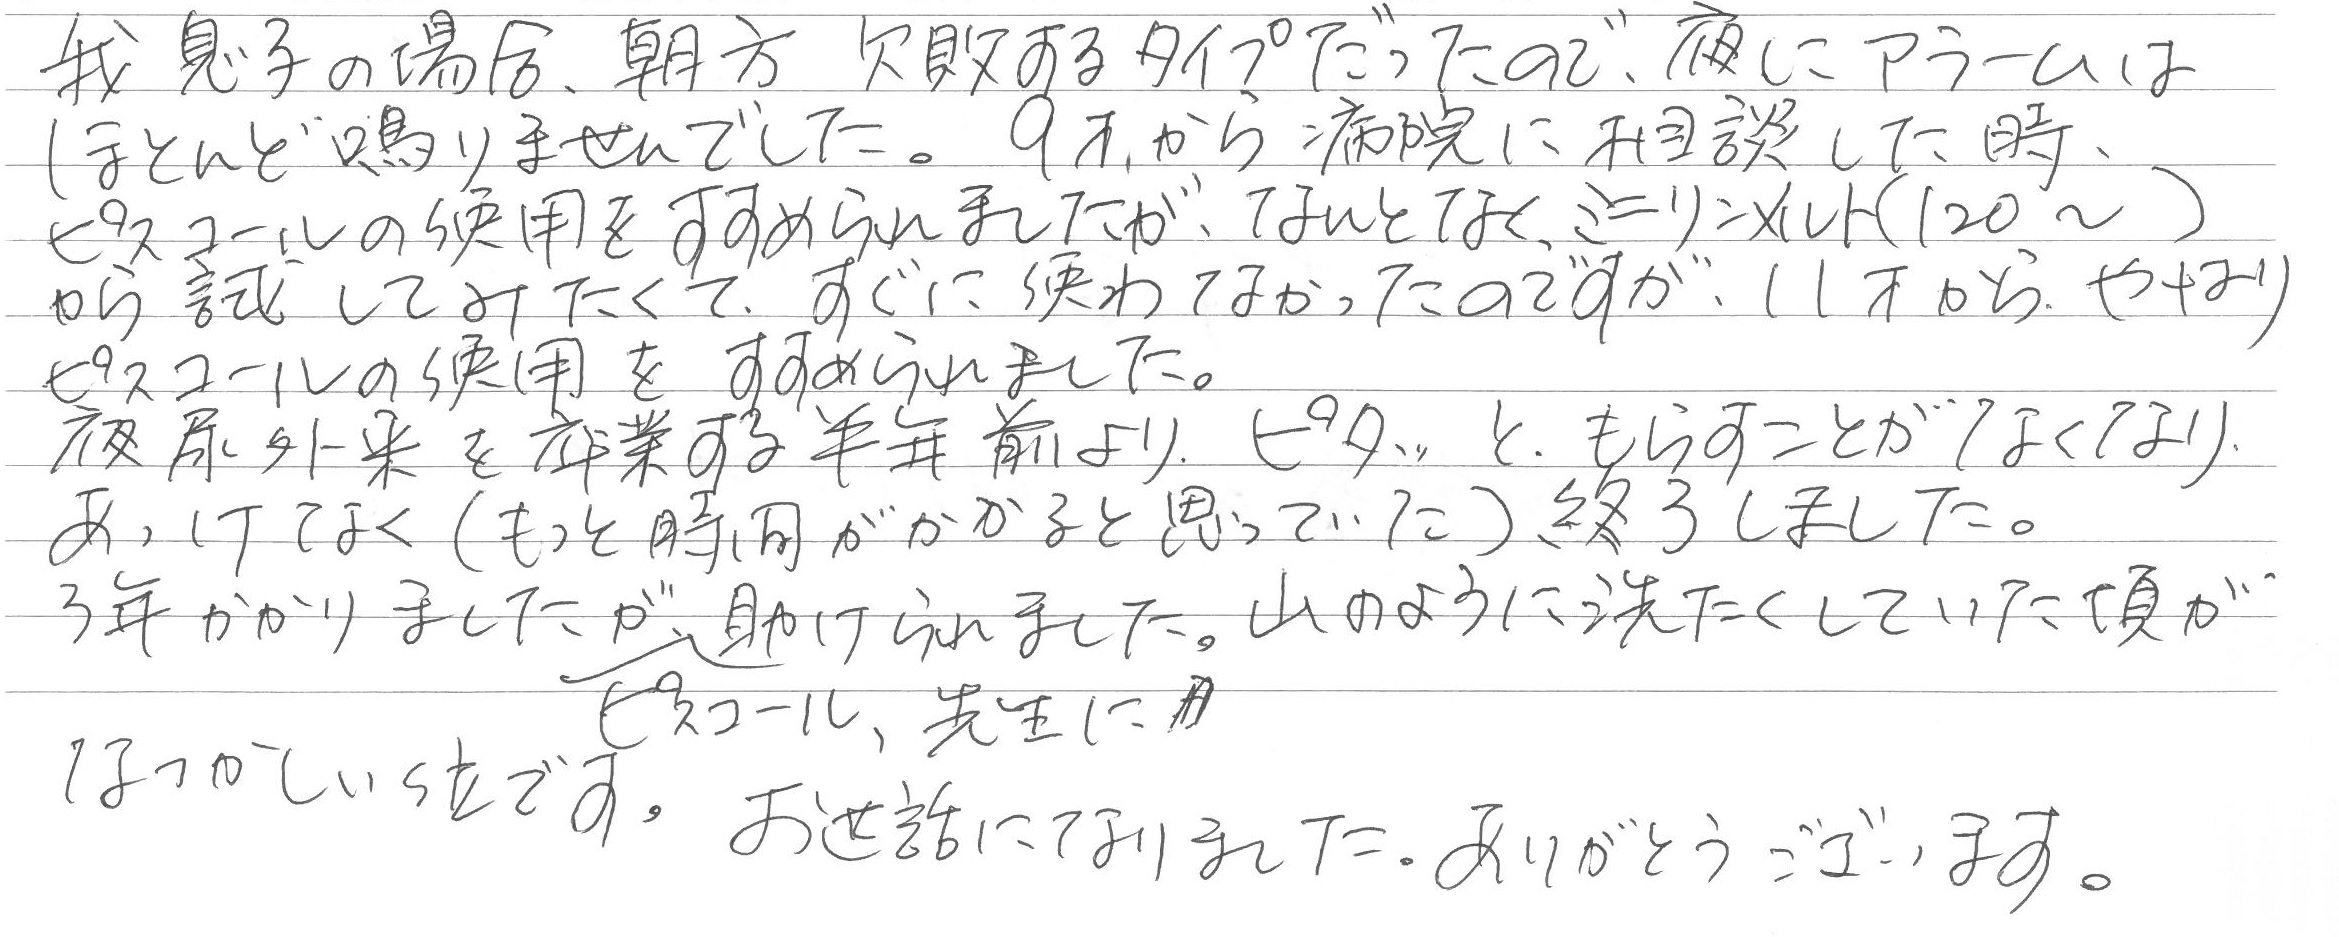 我息子の場合、朝方欠敗するタイプだったので、夜にアラームは
ほとんど鳴りませんでした。9才から病院に相談した時、
ピスコールの使用をすすめられましたが、なんとなく、ミニリンメルト(120～)
から試してみたくて、すぐに使わなかったのですが、11才から、やはり
ピスコールの使用をすすめられました。
夜尿外来を卒業する半年前より、ピタッと、もらすことがなくなり、
あっけなく(もっと時間がかかると思っていた)終了しました。
3年かかりましたが、助けられました。山のように洗たくしていた頃が
ピスコール、先生に
なつかしい位です。
お世話になりました。ありがとうございます。